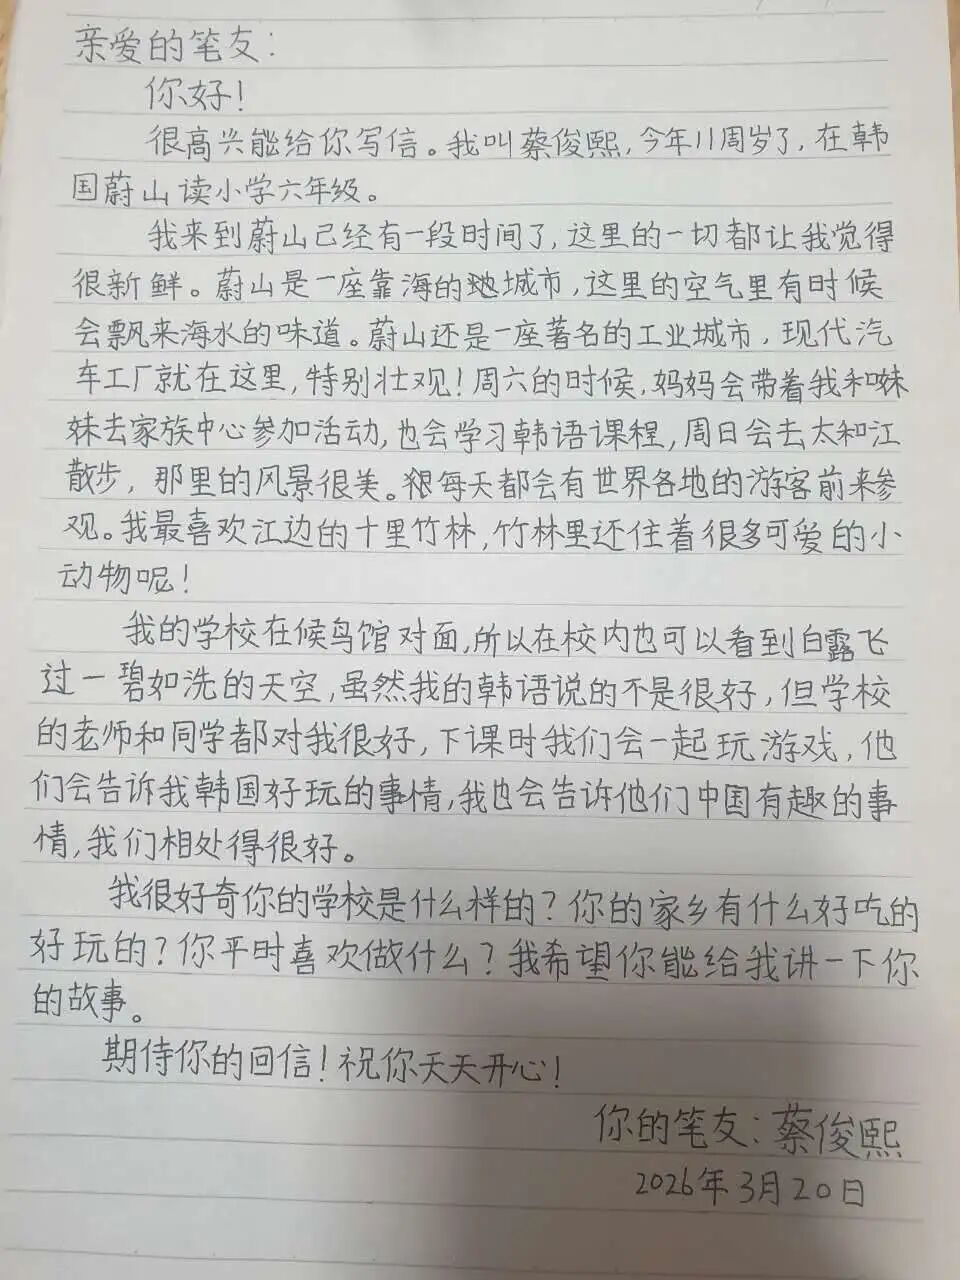 亲爱的笔友：
你好！
很高兴能给你写信。我叫蔡俊熙，今年11周岁了，在韩
国蔚山读小学六年级。
我来到蔚山已经有一段时间了，这里的一切都让我觉得
很新鲜。蔚山是一座靠海的城市，这里的空气里有时候
会飘来海水的味道。蔚山还是一座著名的工业城市，现代汽
车工厂就在这里，特别壮观！周六的时候，妈妈会带着我和妹
妹去家族中心参加活动，也会学习韩语课程，周日会去太和江
散步，那里的风景很美。每天都会有世界各地的游客前来参
观。我最喜欢江边的十里竹林，竹林里还住着很多可爱的小
动物呢！
我的学校在候鸟馆对面，所以在校内也可以看到白露飞
过一碧如洗的天空，虽然我的韩语说的不是很好，但学校
的老师和同学都对我很好，下课时我们会一起玩游戏，他
们会告诉我韩国好玩的事情，我也会告诉他们中国有趣的事
情，我们相处得很好。
我很好奇你的学校是什么样的？你的家乡有什么好吃的
好玩的？你平时喜欢做什么？我希望你能给我讲一下你
的故事。
期待你的回信！祝你天天开心！
你的笔友：蔡俊熙
2026年3月20日